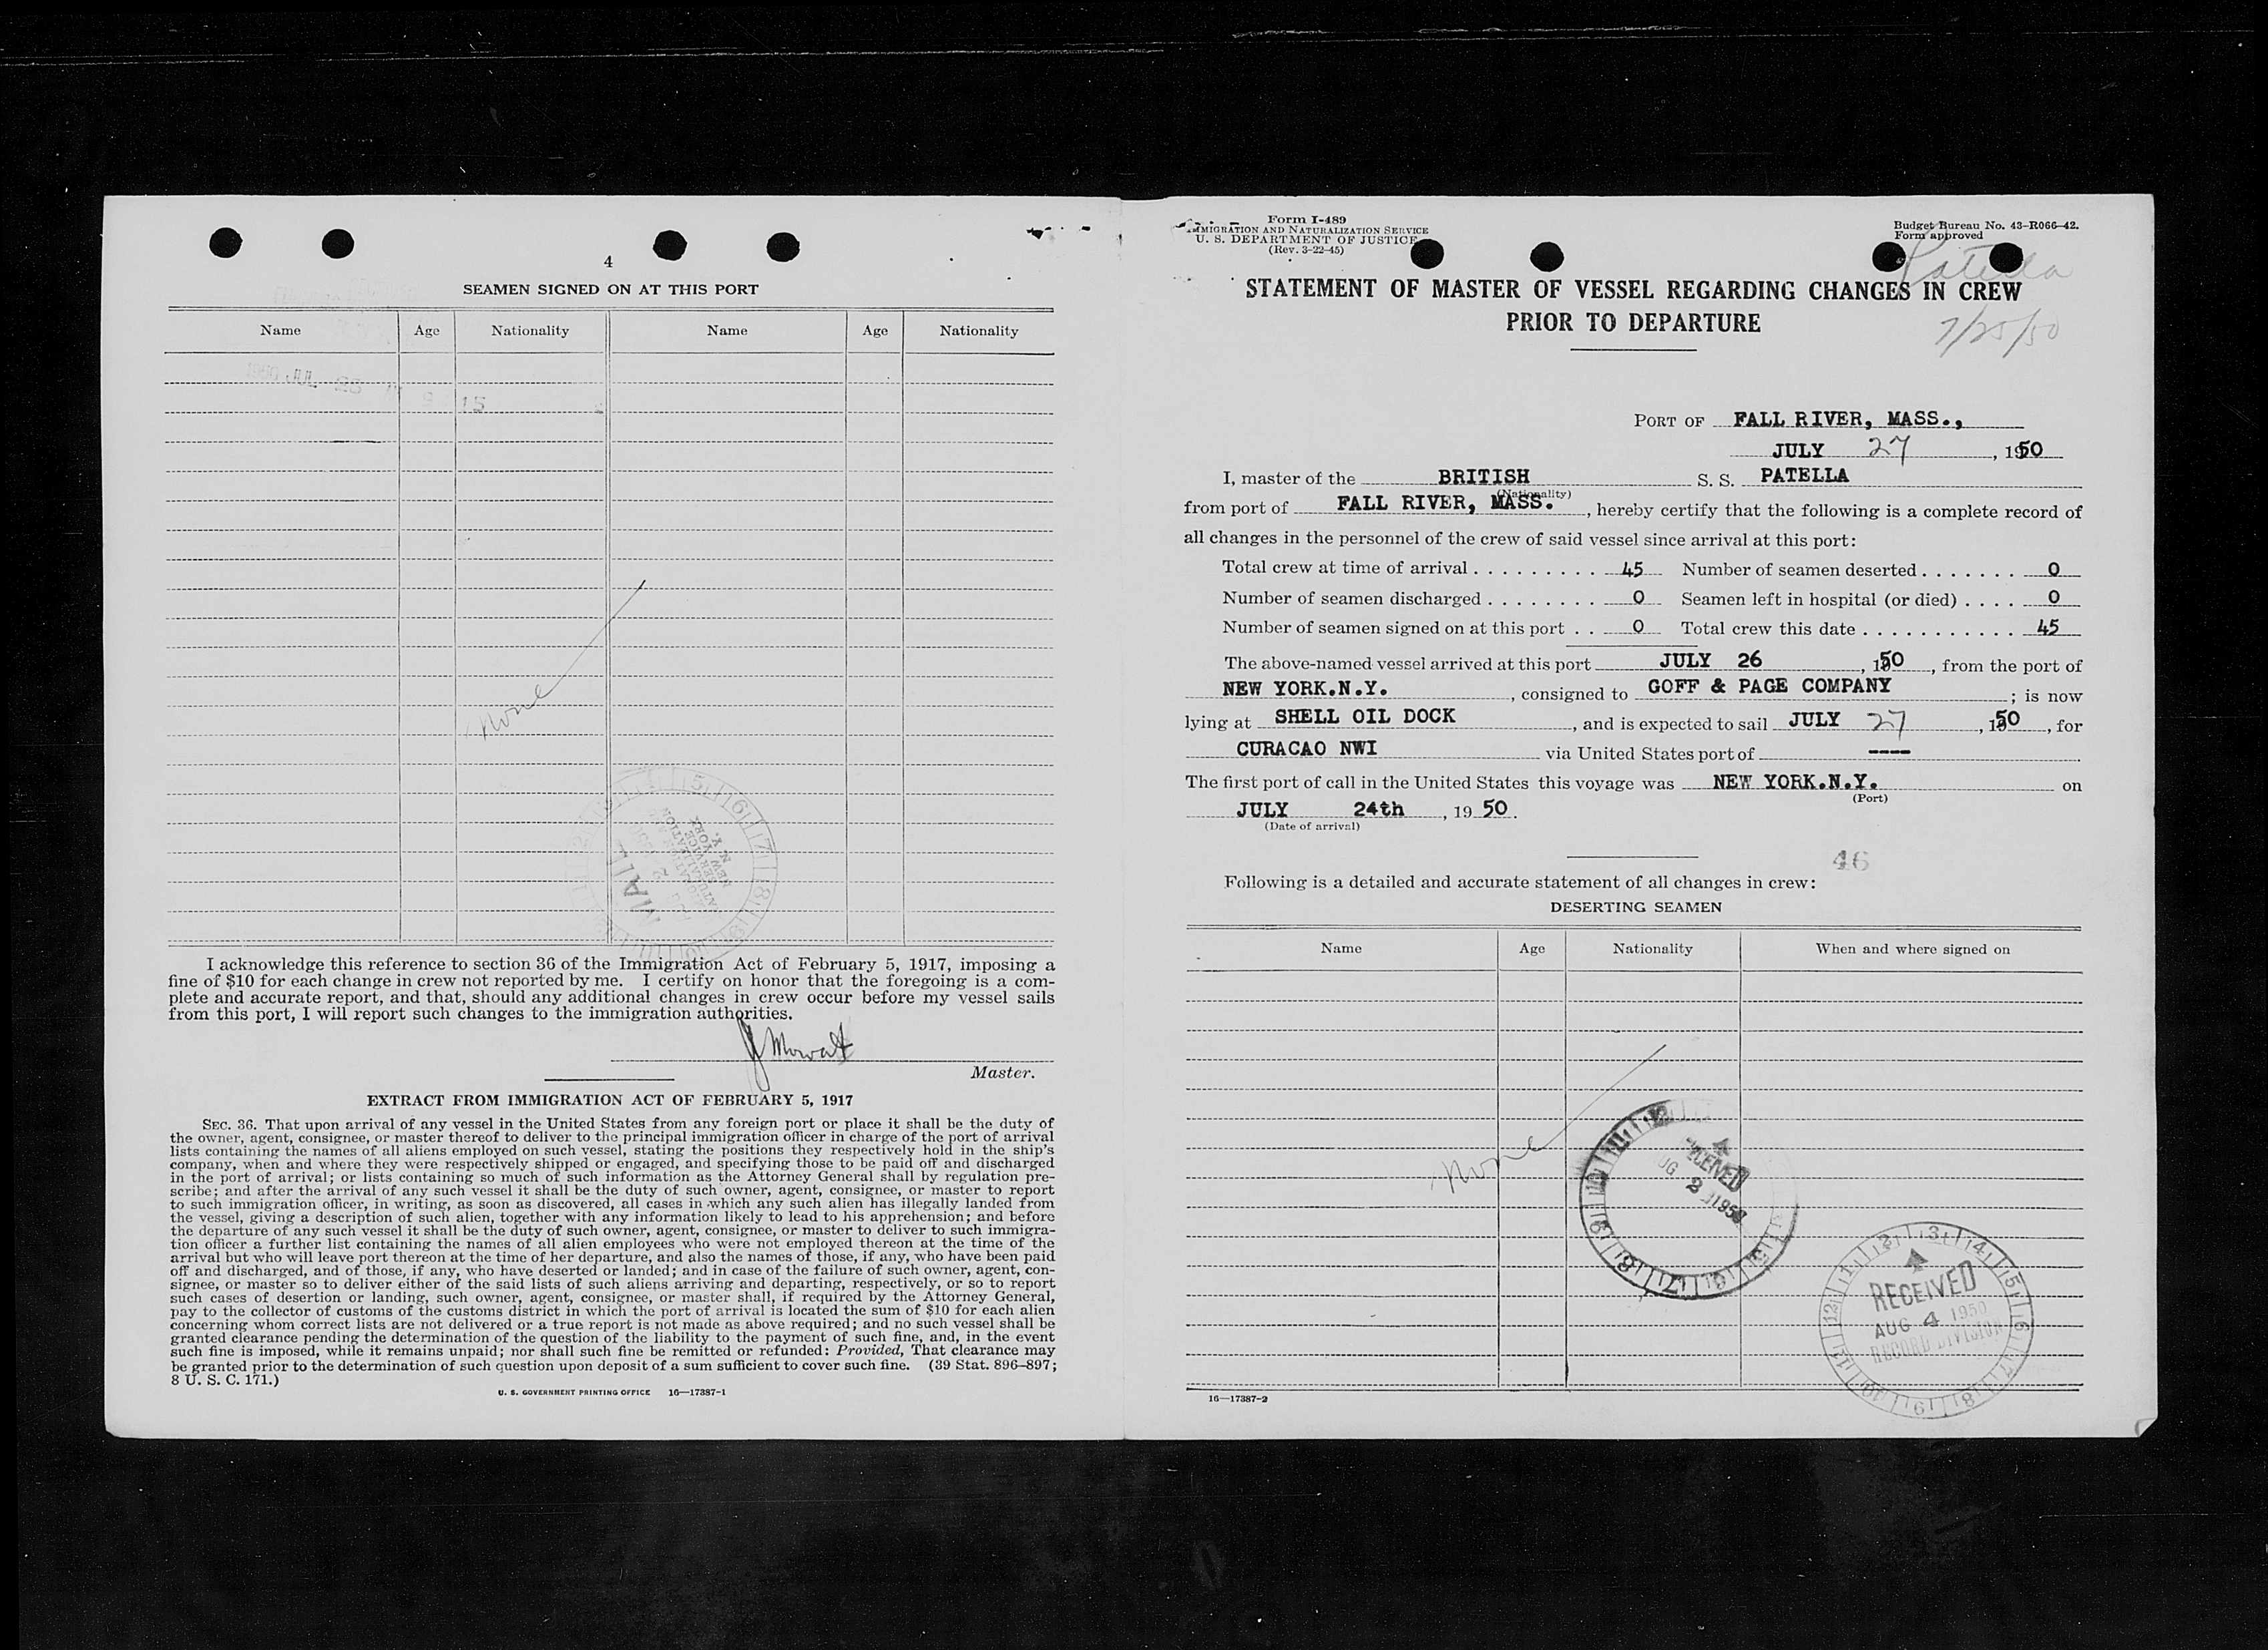 4
SEAMEN SIGNED ON AT THIS PORT
Name Age Nationality Name Age Nationality
JUL 9 15
None
MAIL
I acknowledge this reference to section 36 of the Immigration Act of February 5, 1917, imposing a
fine of $10 for each change in crew not reported by me. I certify on honor that the foregoing is a com-
plete and accurate report, and that, should any additional changes in crew occur before my vessel sails
from this port, I will report such changes to the immigration authorities.
J Mowat
Master.
EXTRACT FROM IMMIGRATION ACT OF FEBRUARY 5, 1917
SEC. 36. That upon arrival of any vessel in the United States from any foreign port or place it shall be the duty of
the owner, agent, consignee, or master thereof to deliver to the principal immigration officer in charge of the port of arrival
lists containing the names of all aliens employed on such vessel, stating the positions they respectively hold in the ship's
company, when and where they were respectively shipped or engaged, and specifying those to be paid off and discharged
in the port of arrival; or lists containing so much of such information as the Attorney General shall by regulation pre-
scribe; and after the arrival of any such vessel it shall be the duty of such owner, agent, consignee, or master to report
to such immigration officer, in writing, as soon as discovered, all cases in which any such alien has illegally landed from
the vessel, giving a description of such alien, together with any information likely to lead to his apprehension; and before
the departure of any such vessel it shall be the duty of such owner, agent, consignee, or master to deliver to such immigra-
tion officer a further list containing the names of all alien employees who were not employed thereon at the time of the
arrival but who will leave port thereon at the time of her departure, and also the names of those, if any, who have been paid
off and discharged, and of those, if any, who have deserted or landed; and in case of the failure of such owner, agent, con-
signee, or master so to deliver either of the said lists of such aliens arriving and departing, respectively, or so to report
such cases of desertion or landing, such owner, agent, consignee, or master shall, if required by the Attorney General,
pay to the collector of customs of the customs district in which the port of arrival is located the sum of $10 for each alien
concerning whom correct lists are not delivered or a true report is not made as above required; and no such vessel shall be
granted clearance pending the determination of the question of the liability to the payment of such fine, and, in the event
such fine is imposed, while it remains unpaid; nor shall such fine be remitted or refunded: Provided, That clearance may
be granted prior to the determination of such question upon deposit of a sum sufficient to cover such fine. (39 Stat. 896–897;
8 U. S. C. 171.)
U. S. GOVERNMENT PRINTING OFFICE 16—17387-1
Form I-489
IMMIGRATION AND NATURALIZATION SERVICE
U. S. DEPARTMENT OF JUSTICE
(Rev. 3-22-45)
Budget Bureau No. 43-R066-42.
Form approved
Patella
7/25/50
STATEMENT OF MASTER OF VESSEL REGARDING CHANGES IN CREW
PRIOR TO DEPARTURE
PORT OF FALL RIVER, MASS.,
JULY 27, 1950
I, master of the BRITISH S. S. PATELLA
(Nationality)
from port of FALL RIVER, MASS., hereby certify that the following is a complete record of
all changes in the personnel of the crew of said vessel since arrival at this port:
Total crew at time of arrival . . . . . . . . . 45 Number of seamen deserted . . . . . . . 0
Number of seamen discharged . . . . . . . . 0 Seamen left in hospital (or died) . . . . 0
Number of seamen signed on at this port . . 0 Total crew this date . . . . . . . . . . . 45
The above-named vessel arrived at this port JULY 26, 1950, from the port of
NEW YORK.N.Y., consigned to GOFF & PAGE COMPANY; is now
lying at SHELL OIL DOCK, and is expected to sail JULY 27, 1950, for
CURACAO NWI via United States port of ----.
The first port of call in the United States this voyage was NEW YORK.N.Y. on
(Port)
JULY 24th, 19 50.
(Date of arrival)
46
Following is a detailed and accurate statement of all changes in crew:
DESERTING SEAMEN
Name Age Nationality When and where signed on
None
RECEIVED
AUG 2 1950
RECEIVED
AUG 4 1950
RECORD DIVISION
16—17387-2